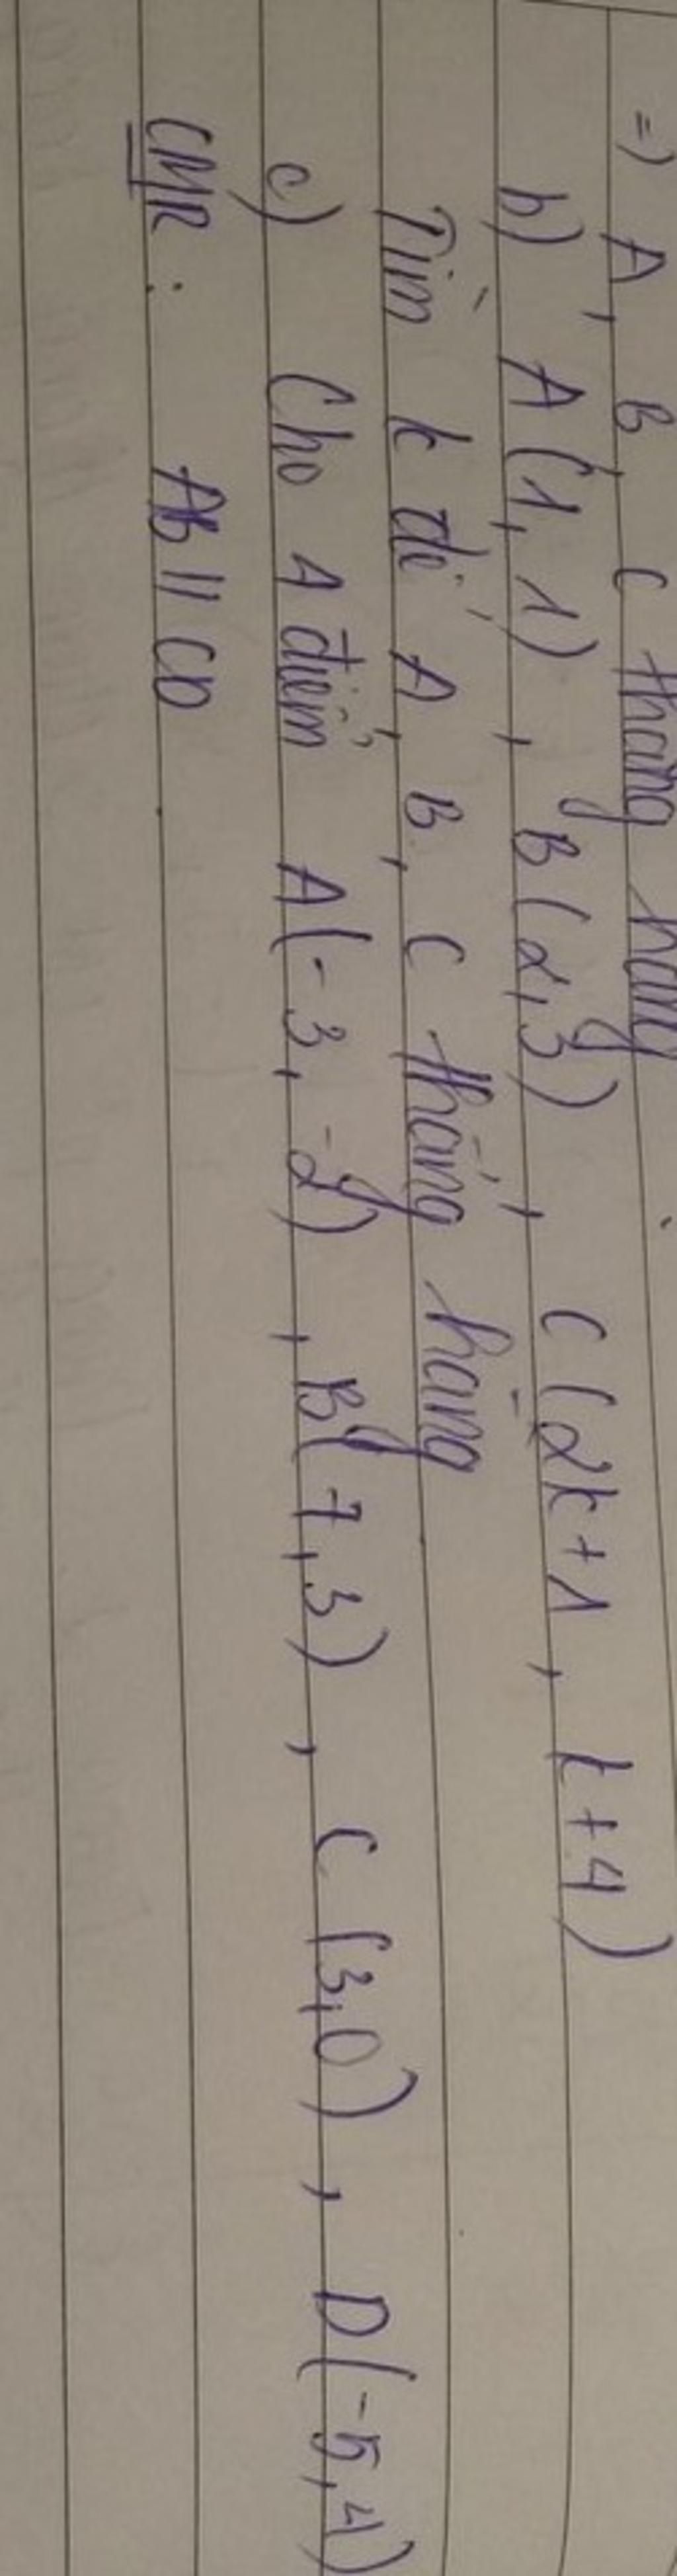 =) A, B, C thẳng hàng
b) A(1, 1), B(2, 3), C(2k+1, k+4)
Tìm k để A, B, C thẳng hàng
c) Cho 4 điểm A(-3, -2), B(7, 3), C(3, 0), D(-5, 4)
CMR : AB // CD